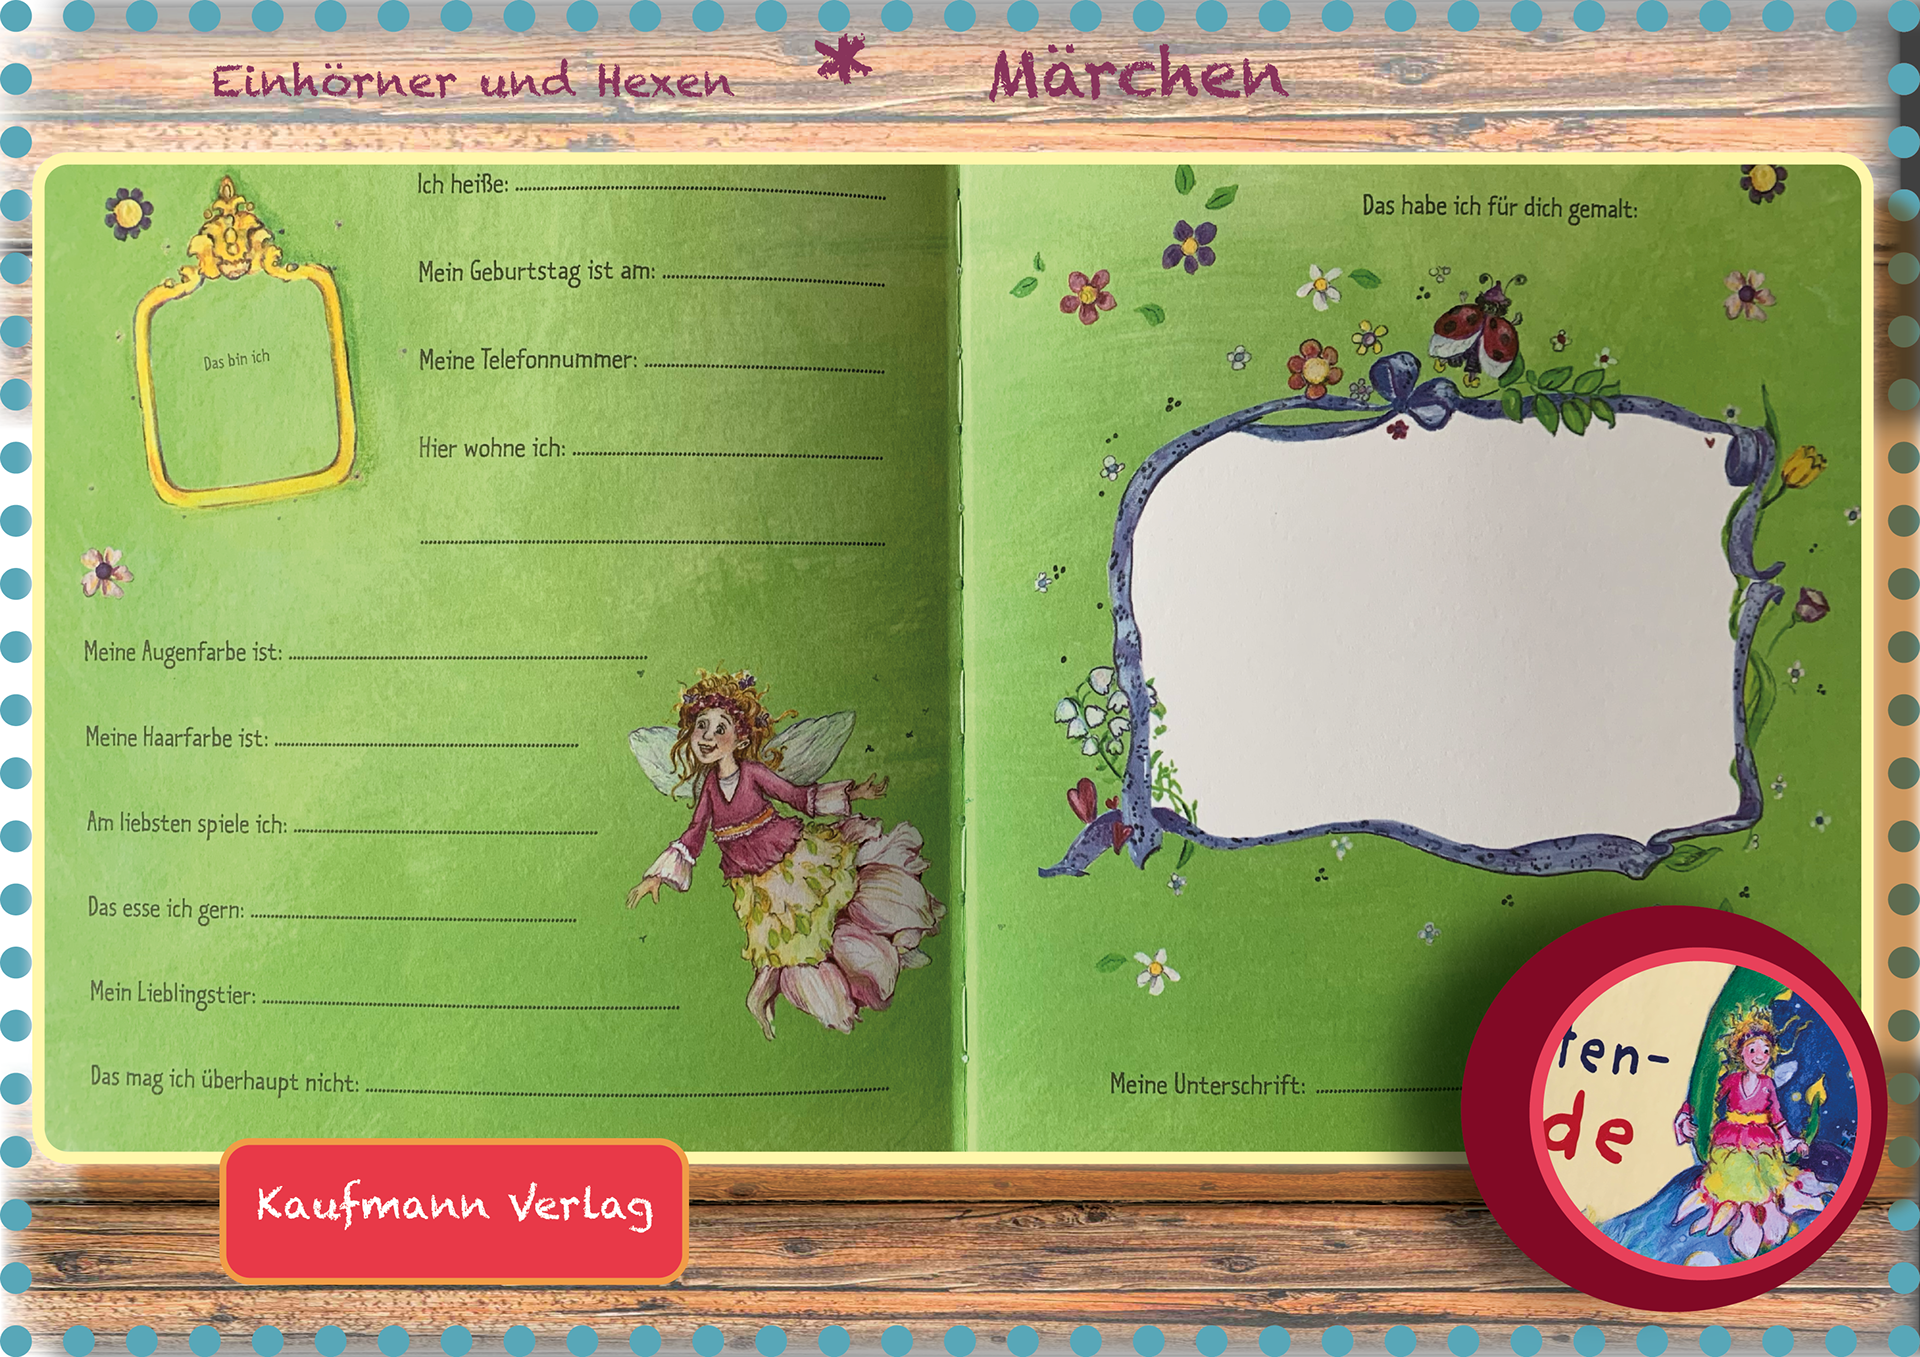 Einhörner und Hexen * Märchen
Ich heiße:
Mein Geburtstag ist am:
Das bin ich
Meine Telefonnummer:
Hier wohne ich:
Meine Augenfarbe ist:
Meine Haarfarbe ist:
Am liebsten spiele ich:
Das esse ich gern:
Mein Lieblingstier:
Das mag ich überhaupt nicht:
Das habe ich für dich gemalt:
Meine Unterschrift:
ten-
de
Kaufmann Verlag